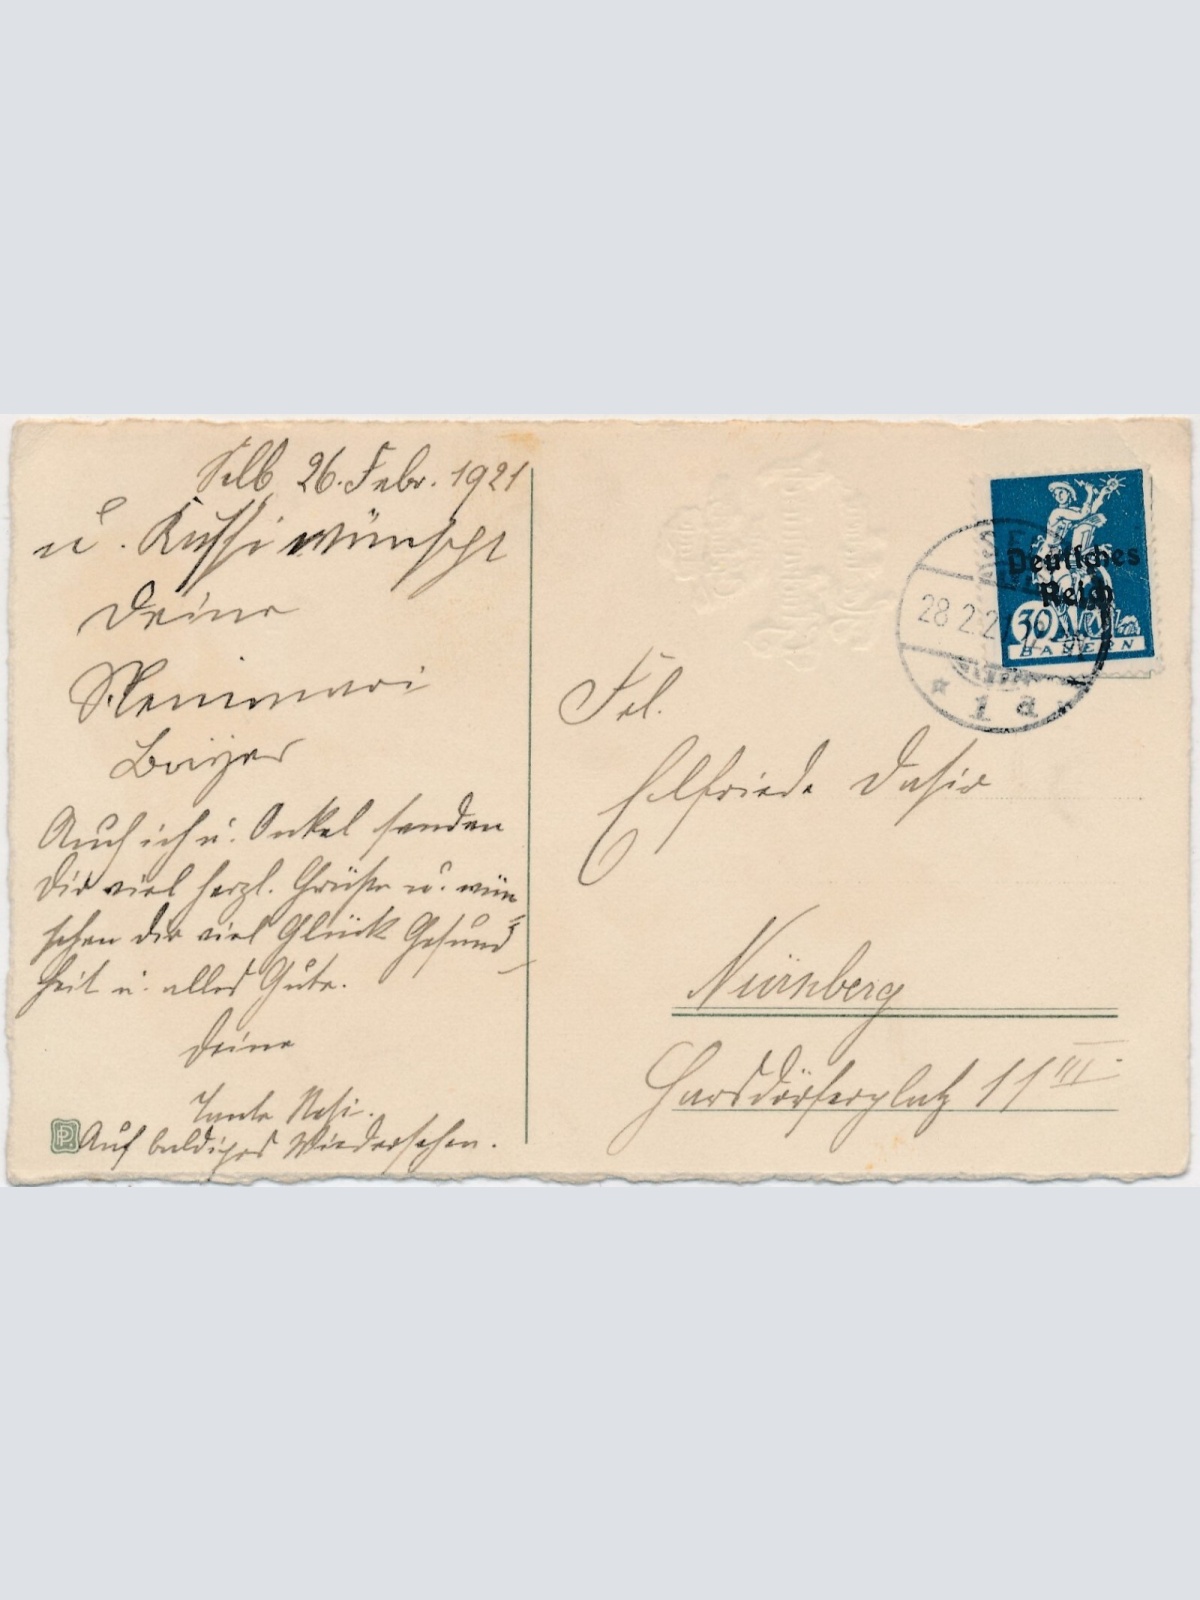 Selb, 26. Febr. 1921
u. Kussi wünscht
Deine
Auch ich u. Onkel senden
Dir viel herzl. Grüße u. wün=
schen Dir viel Glück Gesund-
heit u. alles Gute.
Deine
Tante Resi.
Auf baldiges Wiedersehen.
PP
Deutsches
Reich
30
BAYERN
28 2 21
1 a
Frl.
Elfriede
Nürnberg
Harsdörferplatz 11 III.